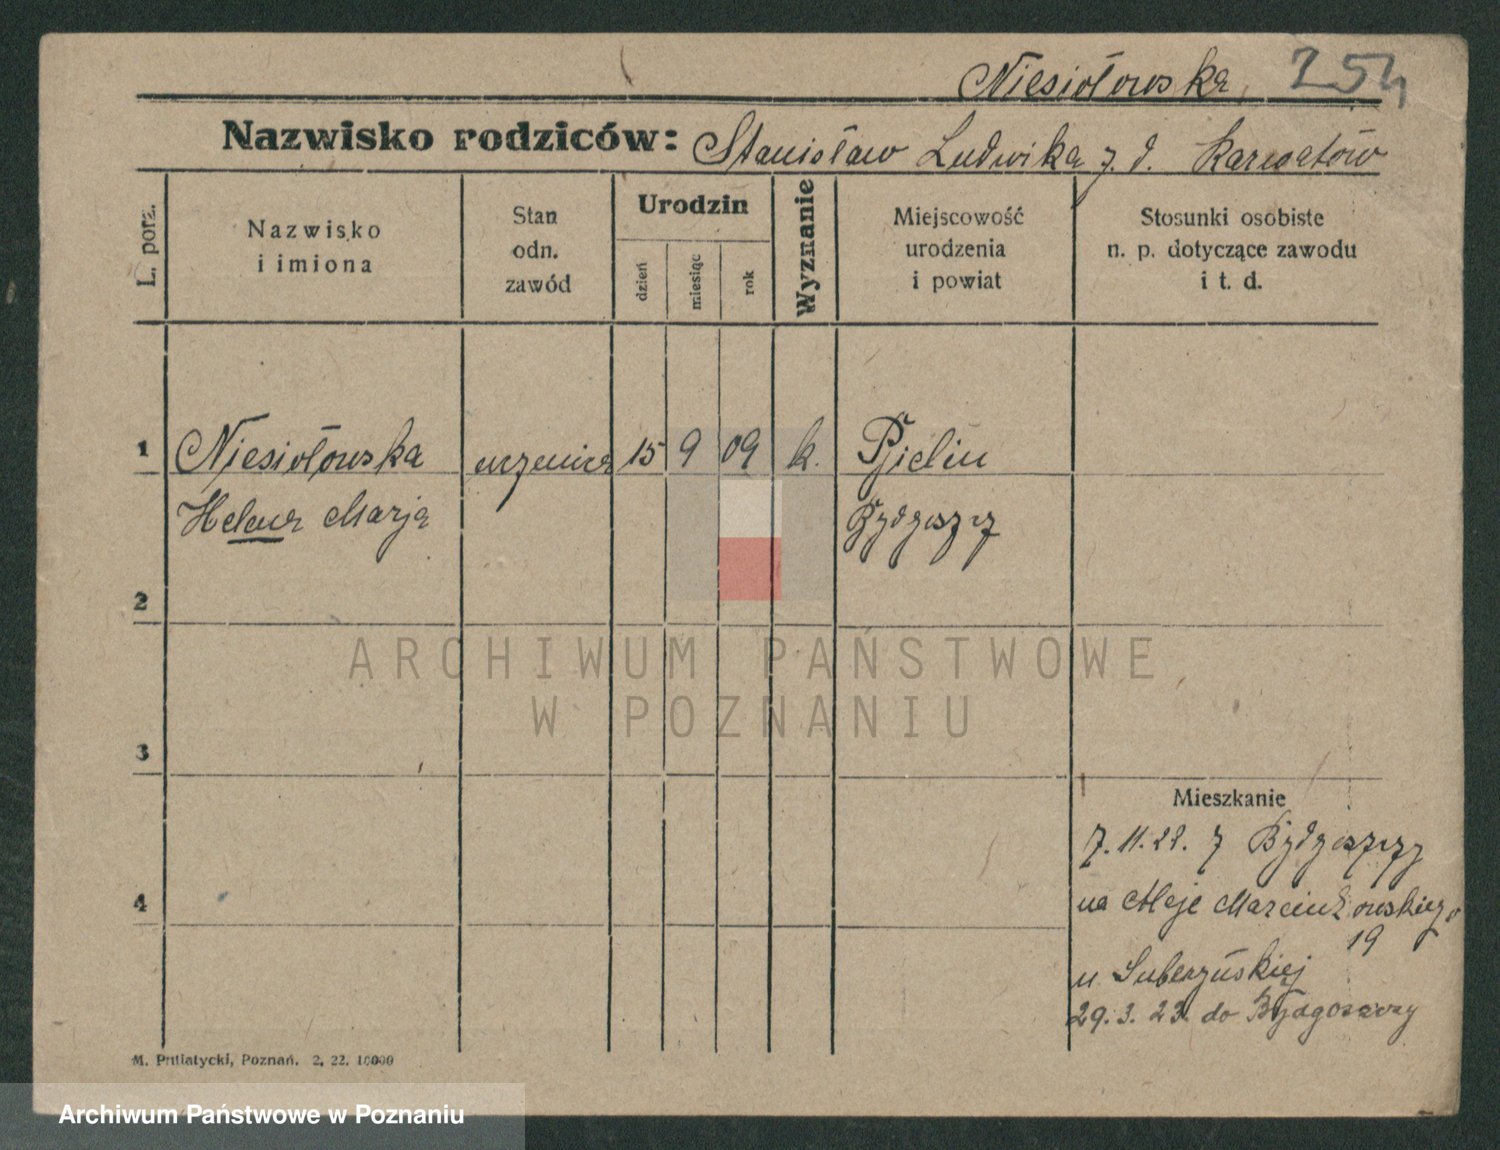 Niesiołowska 254
Nazwisko rodziców: Stanisław Ludwika z. d. Karwatów
L. porz.
Nazwisko
i imiona
Stan
odn.
zawód
Urodzin
dzień
miesiąc
rok
Wyznanie
Miejscowość
urodzenia
i powiat
Stosunki osobiste
n. p. dotyczące zawodu
i t. d.
1 Niesiołowska uczenica 15 9 09 k.
Helena Marja Bydgoszcz
2
3
Mieszkanie
7.11.22. z Bydgoszczy
na Aleje Marcinkowskiego
19
4
u
29.3.23. do Bydgoszczy
M. Putiatycki, Poznań. 2. 22. 10000
ARCHIWUM PAŃSTWOWE
W POZNANIU
Archiwum Państwowe w Poznaniu